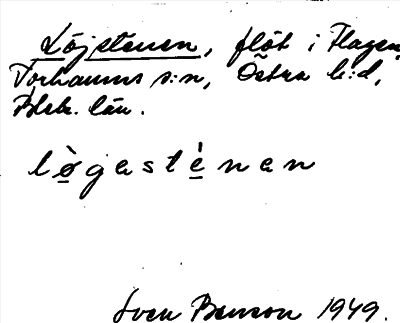 Löjstenen, flöt i Flagen,
Torhamns s:n, Östra h:d,
Blek. län.
lø̀gastènan
Sven Benson 1949.